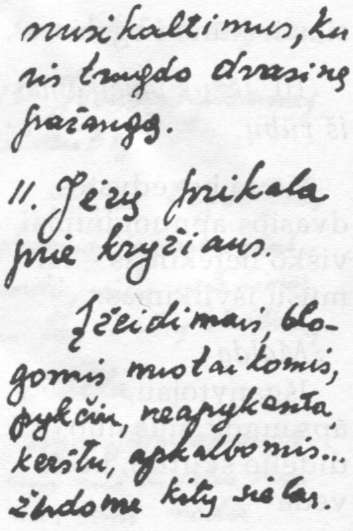 nusikaltimus, ku
ris trugdo dvasinę
pažangą.
11. Jėzų prikala
prie kryžiaus.
Įžeidimais, blo-
gomis nuotaikomis,
pykčiu, neapykanta
kerštu, apkalbomis...
žudome kitų sielas.